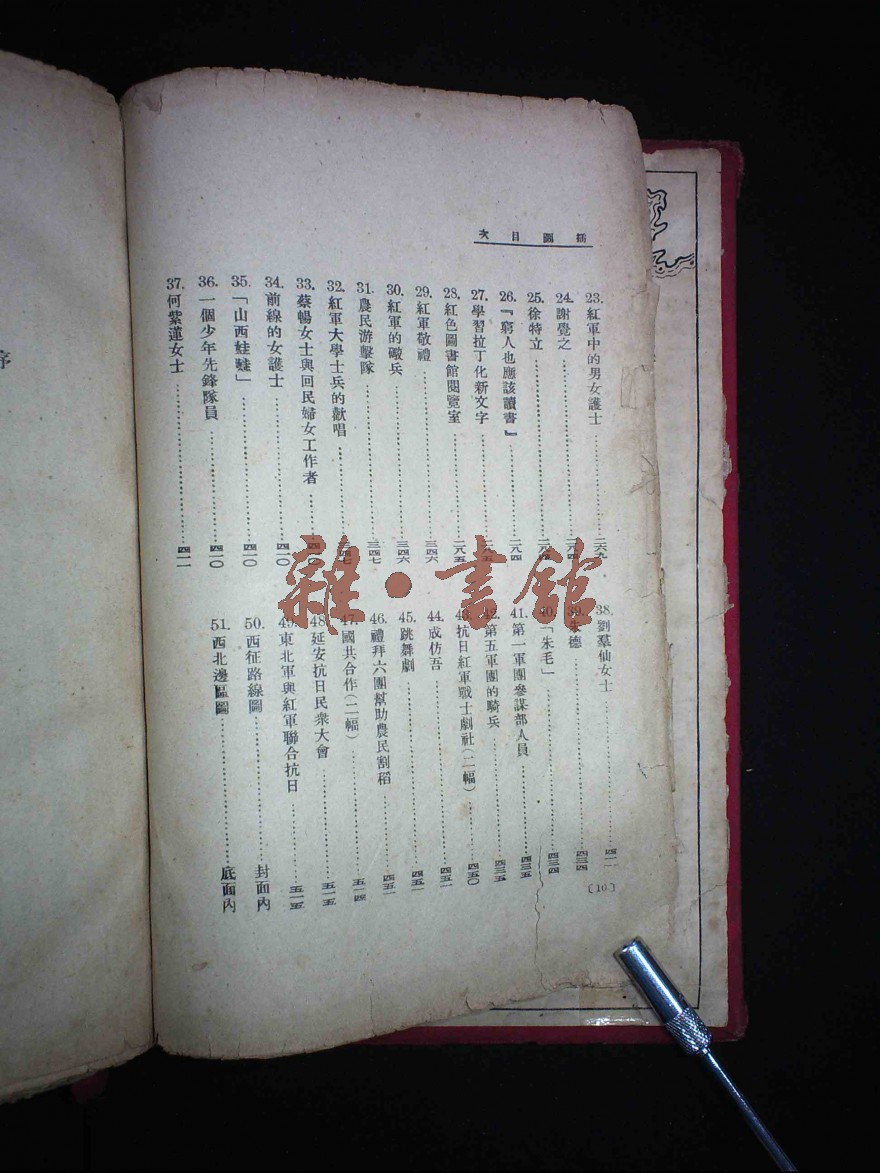 插圖目次
23. 紅軍中的男女護士……二六九
24. 謝覺之
25. 徐特立
26. 『窮人也應該讀書』……二八四
27. 學習拉丁化新文字
28. 紅色圖書館閱覽室……二八五
29. 紅軍敬禮……三四六
30. 紅軍的礮兵……三四六
31. 農民游擊隊……三四七
32. 紅軍大學士兵的歡唱……三四七
33. 蔡暢女士與回民婦女工作者……四一〇
34. 前線的女護士……四一〇
35. 「山西蛙蛙」……四一〇
36. 一個少年先鋒隊員……四一〇
37. 何紫蓮女士……四一一
38. 劉羣仙女士……四一一
39. 朱德……四三四
40. 「朱毛」……四三四
41. 第一軍團參謀部人員……四三五
42. 第五軍團的騎兵……四三五
43. 抗日紅軍戰士劇社(二幅)……四五〇
44. 成仿吾……四五一
45. 跳舞劇……四五一
46. 禮拜六團幫助農民割稻……四五一
47. 國共合作(二幅)……五一四
48. 延安抗日民衆大會……五一五
49. 東北軍與紅軍聯合抗日……五一五
50. 西征路線圖……封面內
51. 西北邊區圖……底面內
〔10〕
序
雜·書館